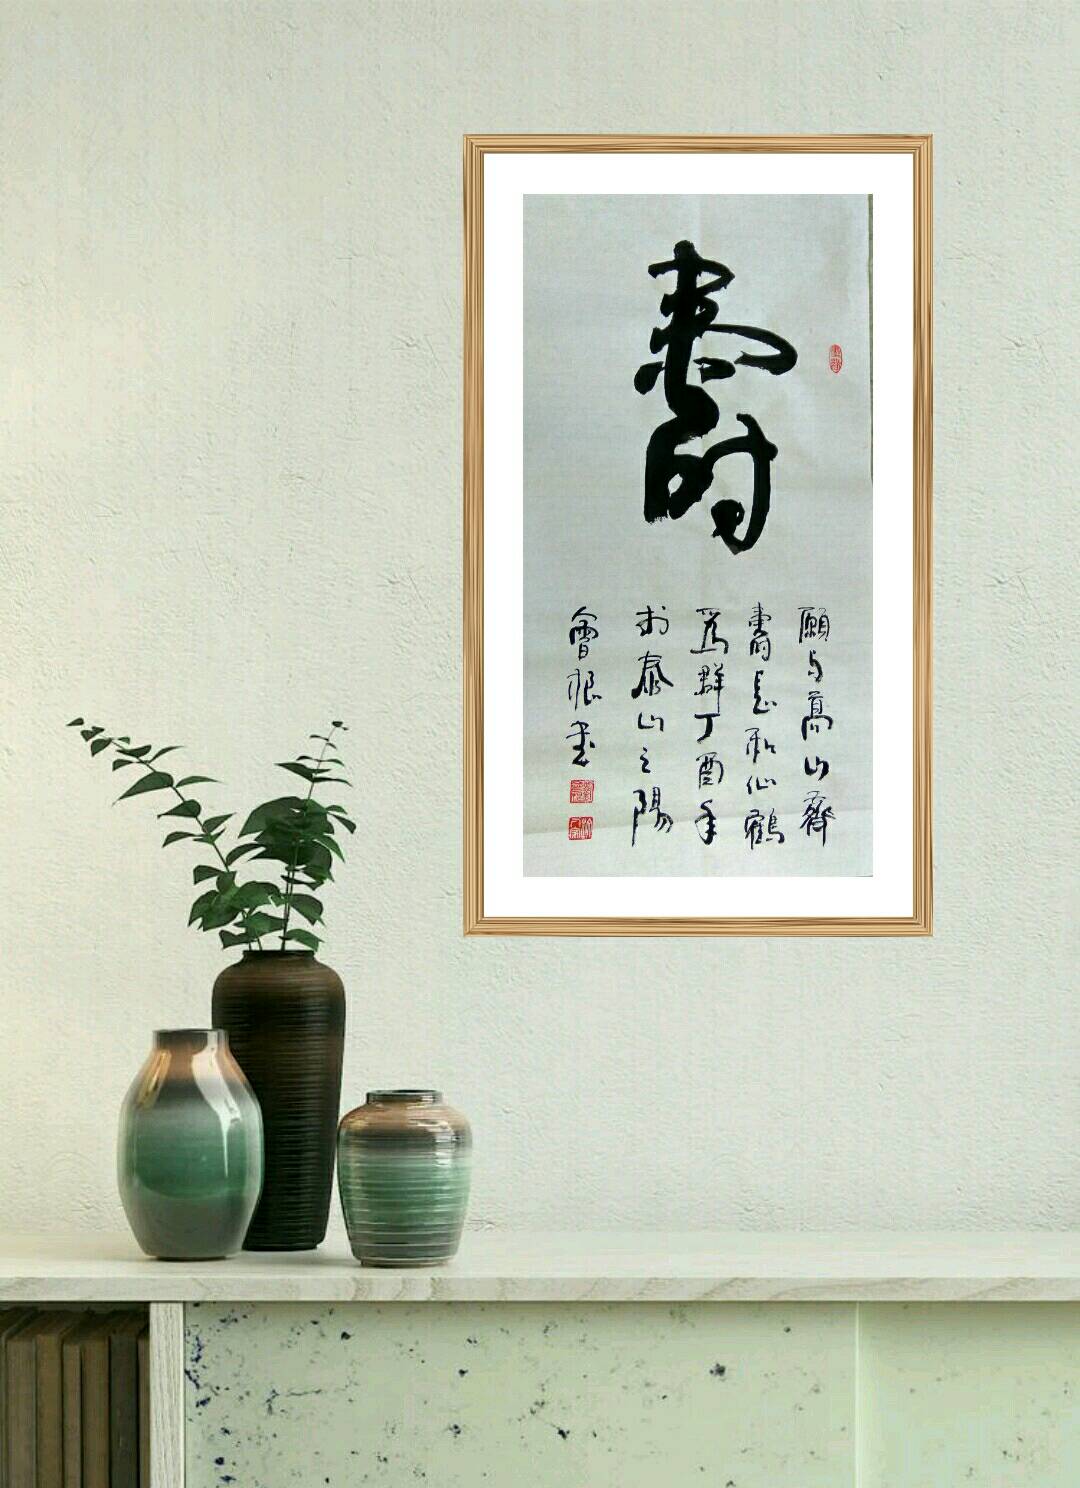 壽
願与高山齊
壽長和仙鶴
為群丁酉年
於泰山之陽
會根书